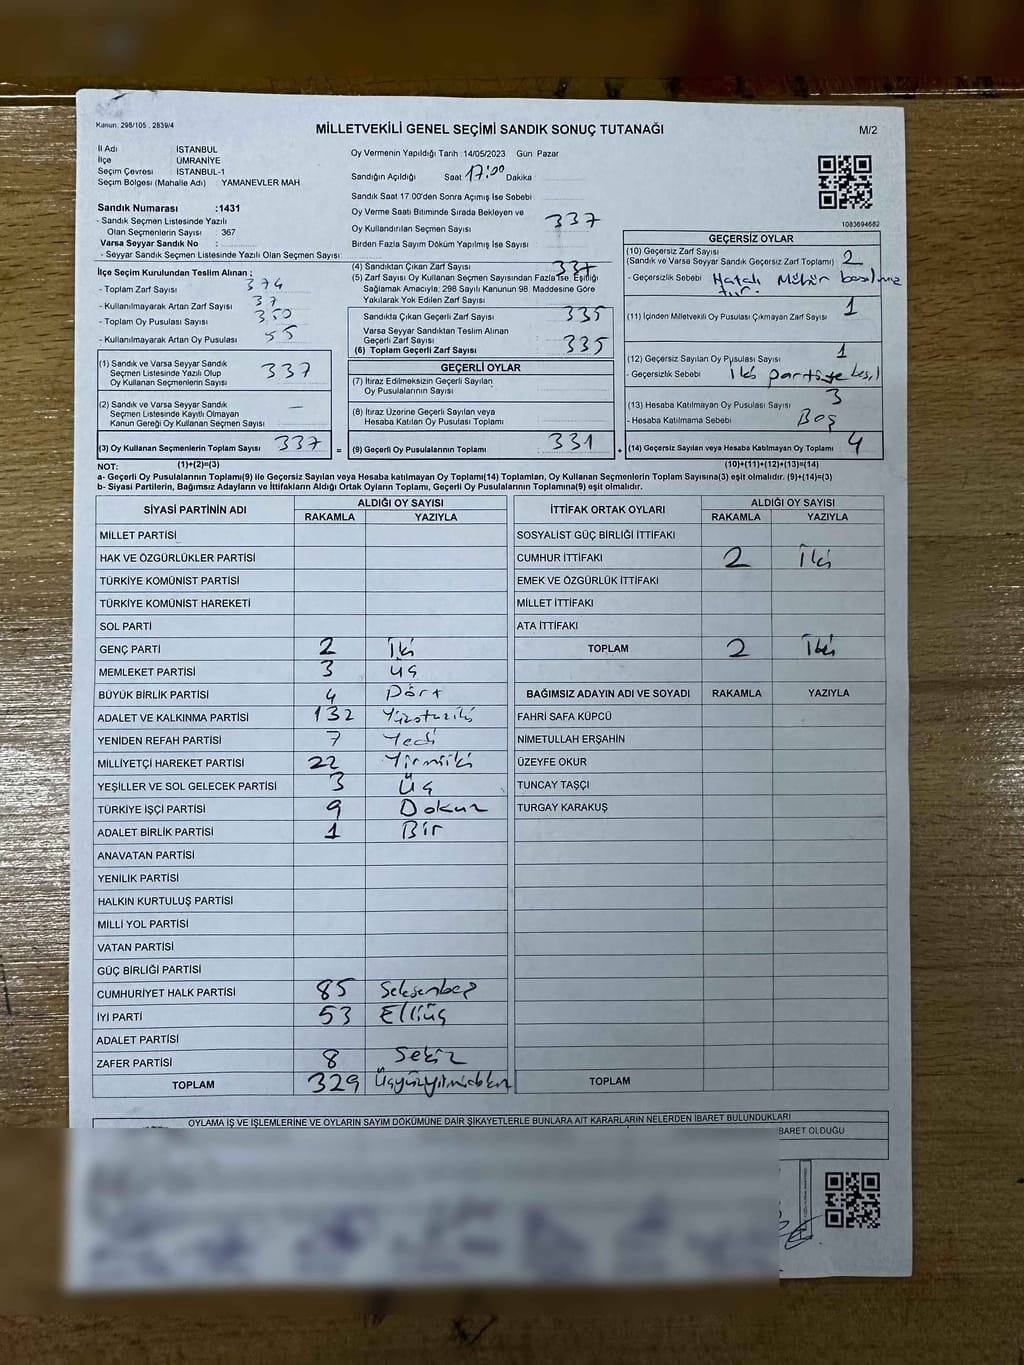 Kanun. 298/105 , 2839/4
MİLLETVEKİLİ GENEL SEÇİMİ SANDIK SONUÇ TUTANAĞI
M/2
İl Adı : İSTANBUL
İlçe : ÜMRANİYE
Seçim Çevresi : İSTANBUL-1
Seçim Bölgesi (Mahalle Adı) : YAMANEVLER MAH
Sandık Numarası :1431
- Sandık Seçmen Listesinde Yazılı
Olan Seçmenlerin Sayısı : 367
Varsa Seyyar Sandık No :
- Seyyar Sandık Seçmen Listesinde Yazılı Olan Seçmen Sayısı:
Oy Vermenin Yapıldığı Tarih :14/05/2023 Gün Pazar
Sandığın Açıldığı Saat 17:00 Dakika :
Sandık Saat 17 00'den Sonra Açımış İse Sebebi
Oy Verme Saati Bitiminde Sırada Bekleyen ve
Oy Kullandırılan Seçmen Sayısı : 337
Birden Fazla Sayım Döküm Yapılmış İse Sayısı :
1083694682
İlçe Seçim Kurulundan Teslim Alınan :
- Toplam Zarf Sayısı : 374
- Kullanılmayarak Artan Zarf Sayısı : 37
- Toplam Oy Pusulası Sayısı : 350
- Kullanılmayarak Artan Oy Pusulası : 55
(1) Sandık ve Varsa Seyyar Sandık
Seçmen Listesinde Yazılı Olup
Oy Kullanan Seçmenlerin Sayısı : 337
(2) Sandık ve Varsa Seyyar Sandık
Seçmen Listesinde Kayıtlı Olmayan
Kanun Gereği Oy Kullanan Seçmen Sayısı : —
(3) Oy Kullanan Seçmenlerin Toplam Sayısı : 337 =
(1)+(2)=(3)
(4) Sandıktan Çıkan Zarf Sayısı : 337
(5) Zarf Sayısı Oy Kullanan Seçmen Sayısından Fazla İse, Eşitliği
Sağlamak Amacıyla; 298 Sayılı Kanunun 98. Maddesine Göre
Yakılarak Yok Edilen Zarf Sayısı :
Sandıkta Çıkan Geçerli Zarf Sayısı : 335
Varsa Seyyar Sandıktan Teslim Alınan
Geçerli Zarf Sayısı :
(6) Toplam Geçerli Zarf Sayısı : 335
GEÇERLİ OYLAR
(7) İtiraz Edilmeksizin Geçerli Sayılan
Oy Pusulalarının Sayısı :
(8) İtiraz Üzerine Geçerli Sayılan veya
Hesaba Katılan Oy Pusulası Toplamı :
(9) Geçerli Oy Pusulalarının Toplamı : 331 +
GEÇERSİZ OYLAR
(10) Geçersiz Zarf Sayısı
(Sandık ve Varsa Seyyar Sandık Geçersiz Zarf Toplamı) : 2
- Geçersizlik Sebebi : Hatalı Mühür basılmış
tır.
(11) İçinden Milletvekili Oy Pusulası Çıkmayan Zarf Sayısı : 1
(12) Geçersiz Sayılan Oy Pusulası Sayısı : 1
- Geçersizlik Sebebi : İki partiye
(13) Hesaba Katılmayan Oy Pusulası Sayısı : 3
- Hesaba Katılmama Sebebi : Boş
(14) Geçersiz Sayılan veya Hesaba Katılmayan Oy Toplamı : 4
(10)+(11)+(12)+(13)=(14)
NOT:
a- Geçerli Oy Pusulalarının Toplamı(9) ile Geçersiz Sayılan veya Hesaba katılmayan Oy Toplamı(14) Toplamları, Oy Kullanan Seçmenlerin Toplam Sayısına(3) eşit olmalıdır. (9)+(14)=(3)
b- Siyasi Partilerin, Bağımsız Adayların ve İttifakların Aldığı Ortak Oyların Toplamı, Geçerli Oy Pusulalarının Toplamına(9) eşit olmalıdır.
SİYASİ PARTİNİN ADI ALDIĞI OY SAYISI
RAKAMLA YAZIYLA
MİLLET PARTİSİ
HAK VE ÖZGÜRLÜKLER PARTİSİ
TÜRKİYE KOMÜNİST PARTİSİ
TÜRKİYE KOMÜNİST HAREKETİ
SOL PARTİ
GENÇ PARTİ 2 İki
MEMLEKET PARTİSİ 3 üç
BÜYÜK BİRLİK PARTİSİ 4 Dört
ADALET VE KALKINMA PARTİSİ 132 Yüzotuziki
YENİDEN REFAH PARTİSİ 7 Yedi
MİLLİYETÇİ HAREKET PARTİSİ 22 Yirmiiki
YEŞİLLER VE SOL GELECEK PARTİSİ 3 Üç
TÜRKİYE İŞÇİ PARTİSİ 9 Dokuz
ADALET BİRLİK PARTİSİ 1 Bir
ANAVATAN PARTİSİ
YENİLİK PARTİSİ
HALKIN KURTULUŞ PARTİSİ
MİLLİ YOL PARTİSİ
VATAN PARTİSİ
GÜÇ BİRLİĞİ PARTİSİ
CUMHURİYET HALK PARTİSİ 85 Seksenbeş
İYİ PARTİ 53 Elliüç
ADALET PARTİSİ
ZAFER PARTİSİ 8 Sekiz
TOPLAM 329 Üçyüzyirmidokuz
İTTİFAK ORTAK OYLARI ALDIĞI OY SAYISI
RAKAMLA YAZIYLA
SOSYALİST GÜÇ BİRLİĞİ İTTİFAKI
CUMHUR İTTİFAKI 2 İki
EMEK VE ÖZGÜRLÜK İTTİFAKI
MİLLET İTTİFAKI
ATA İTTİFAKI
TOPLAM 2 İki
BAĞIMSIZ ADAYIN ADI VE SOYADI RAKAMLA YAZIYLA
FAHRİ SAFA KÜPCÜ
NİMETULLAH ERŞAHİN
ÜZEYFE OKUR
TUNCAY TAŞÇI
TURGAY KARAKUŞ
TOPLAM
OYLAMA İŞ VE İŞLEMLERİNE VE OYLARIN SAYIM DÖKÜMÜNE DAİR ŞİKAYETLERLE BUNLARA AİT KARARLARIN NELERDEN İBARET BULUNDUKLARI
BARET OLDUĞU